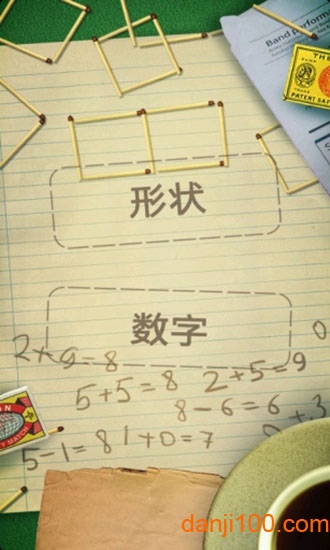 Band perform
THE
PATENT SAF
形状
数字
5+5=8
2+5=9
8-6=6
5-1=8
1+0=7
单机100网
danji100.com